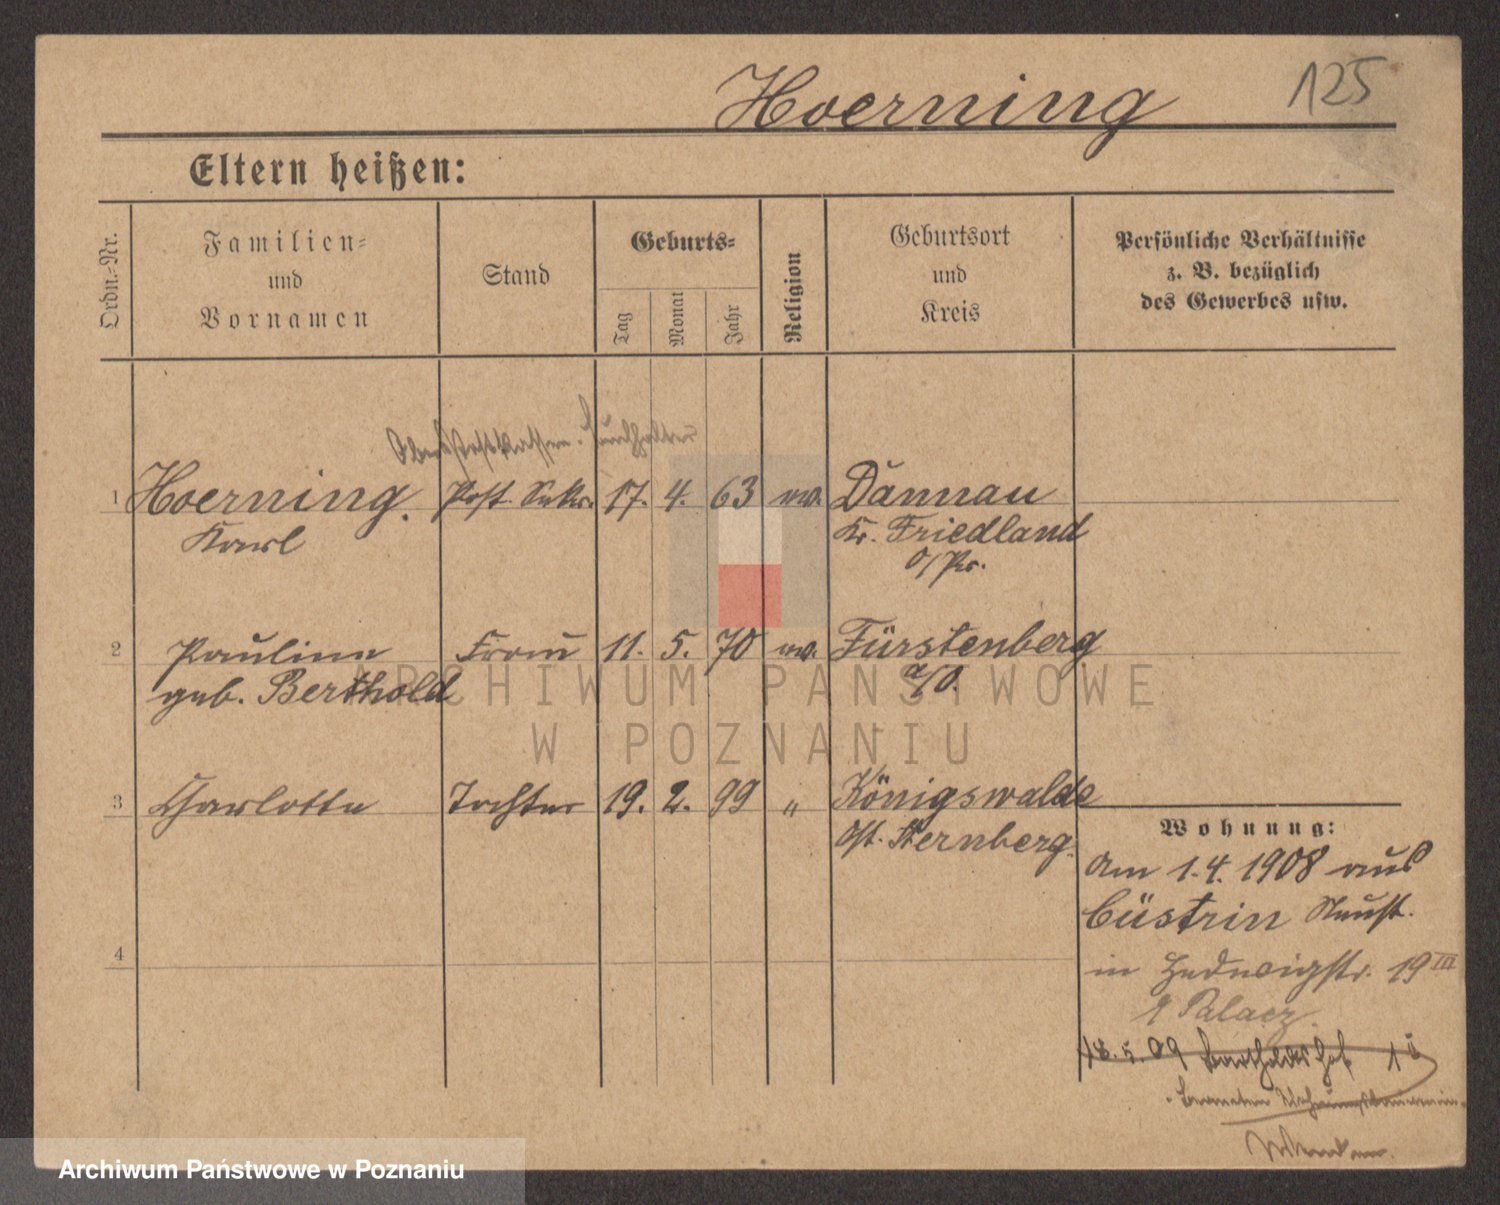 Hoerning
125
Eltern heißen:
Ordn.-Nr.
Familien-
und
Vornamen
Stand
Geburts-
Tag
Monat
Jahr
Religion
Geburtsort
und
Kreis
Persönliche Verhältnisse
z. B. bezüglich
des Gewerbes usw.
Oberpostkassen-Buchhalter
1 Hoerning. Post Sekr. 17. 4. 63 ev. Dannau
Karl Kr. Friedland
O/Pr.
2 Pauline Frau 11. 5. 70 ev. Fürstenberg
geb. Berthold a/O.
3 Charlotte Tochter 19. 2. 99 " Königswalde
Ost. Sternberg.
4
Wohnung:
Am 1.4.1908 aus
Cüstrin Neust.
in Hedwigstr. 19 III
Palacz
18.5.09
Beamten Wohnungsbauverein
ARCHIWUM PAŃSTWOWE
W POZNANIU
Archiwum Państwowe w Poznaniu